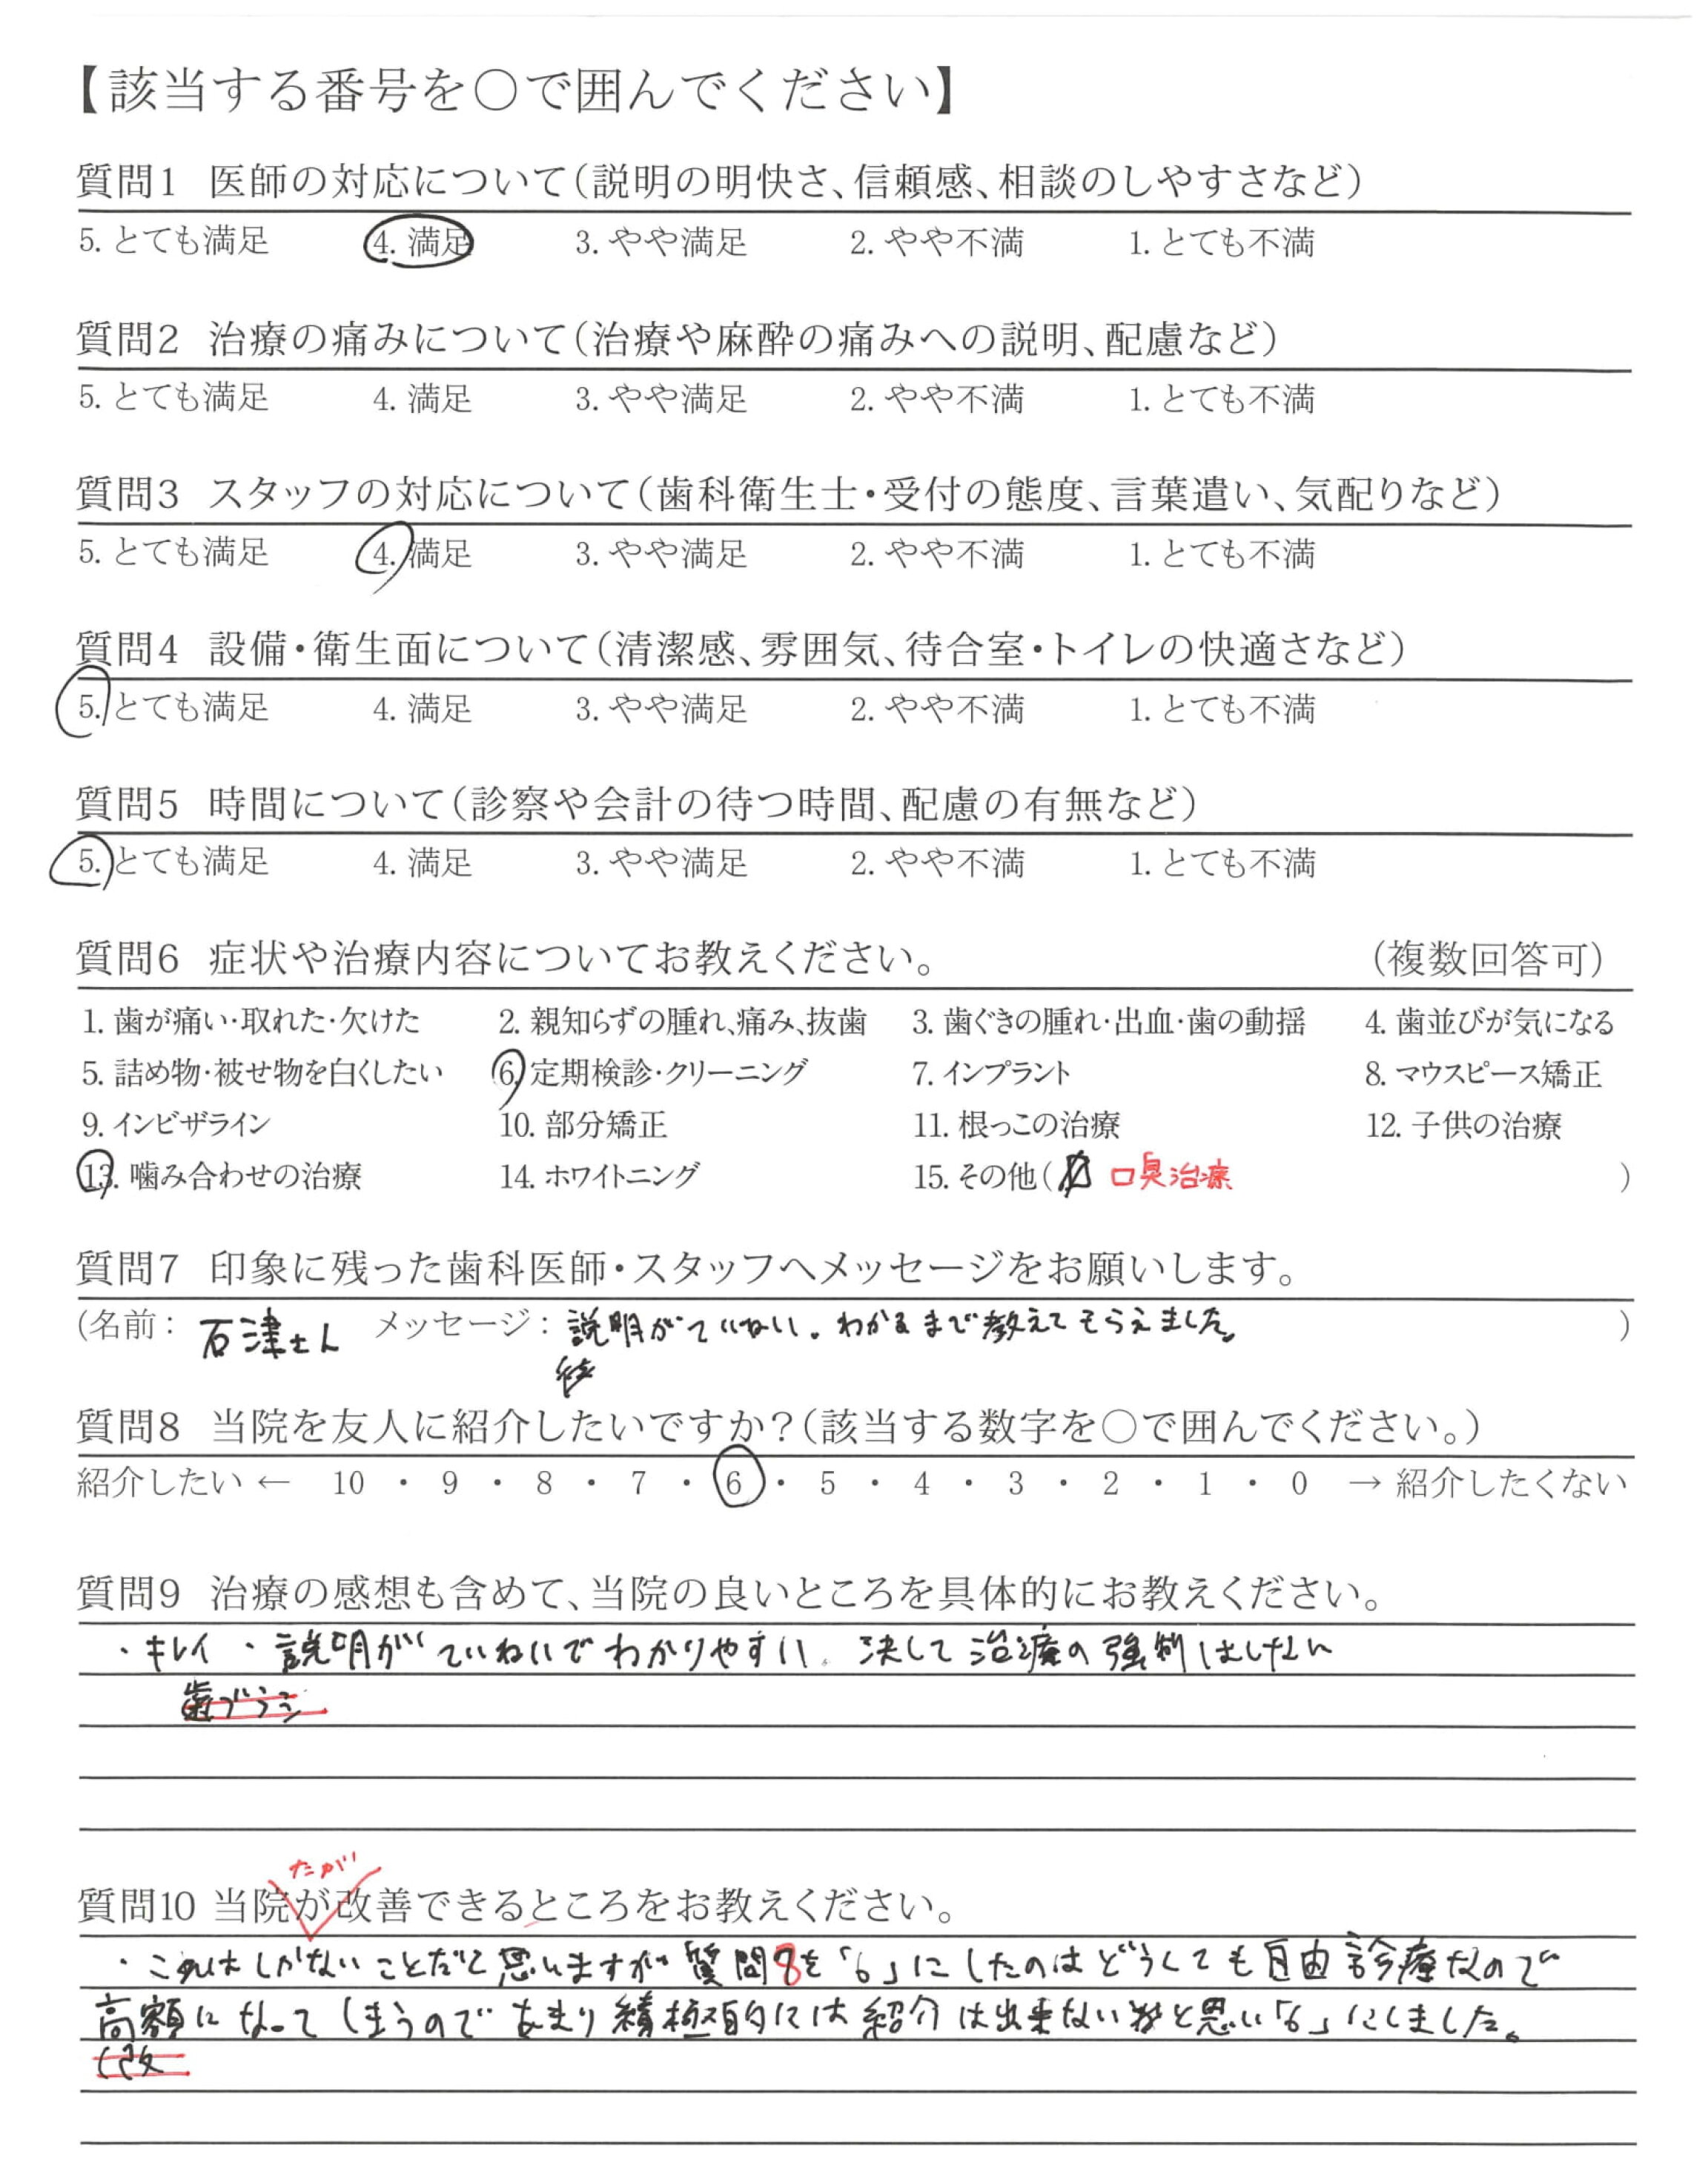 【該当する番号を○で囲んでください】
質問1 医師の対応について(説明の明快さ、信頼感、相談のしやすさなど)
5. とても満足 4. 満足 3. やや満足 2. やや不満 1. とても不満
質問2 治療の痛みについて(治療や麻酔の痛みへの説明、配慮など)
5. とても満足 4. 満足 3. やや満足 2. やや不満 1. とても不満
質問3 スタッフの対応について(歯科衛生士・受付の態度、言葉遣い、気配りなど)
5. とても満足 4. 満足 3. やや満足 2. やや不満 1. とても不満
質問4 設備・衛生面について(清潔感、雰囲気、待合室・トイレの快適さなど)
5. とても満足 4. 満足 3. やや満足 2. やや不満 1. とても不満
質問5 時間について(診察や会計の待つ時間、配慮の有無など)
5. とても満足 4. 満足 3. やや満足 2. やや不満 1. とても不満
質問6 症状や治療内容についてお教えください。 (複数回答可)
1. 歯が痛い・取れた・欠けた 2. 親知らずの腫れ、痛み、抜歯 3. 歯ぐきの腫れ・出血・歯の動揺 4. 歯並びが気になる
5. 詰め物・被せ物を白くしたい 6. 定期検診・クリーニング 7. インプラント 8. マウスピース矯正
9. インビザライン 10. 部分矯正 11. 根っこの治療 12. 子供の治療
13. 噛み合わせの治療 14. ホワイトニング 15. その他( 口臭治療 )
質問7 印象に残った歯科医師・スタッフへメッセージをお願いします。
(名前: 石津さん メッセージ: 説明がていねい。わかるまで教えてもらえました。 )
質問8 当院を友人に紹介したいですか?(該当する数字を○で囲んでください。)
紹介したい ← 10 ・ 9 ・ 8 ・ 7 ・ 6 ・ 5 ・ 4 ・ 3 ・ 2 ・ 1 ・ 0 → 紹介したくない
質問9 治療の感想も含めて、当院の良いところを具体的にお教えください。
・キレイ ・説明がていねいでわかりやすい 決して治療の強制はしない
歯ブラシ
たが
質問10 当院が改善できるところをお教えください。
・これはしかないことだと思いますが質問8を「6」にしたのはどうしても自由診療なので
高額になってしまうのであまり積極的には紹介は出来ない と思い「6」にしました。
(改